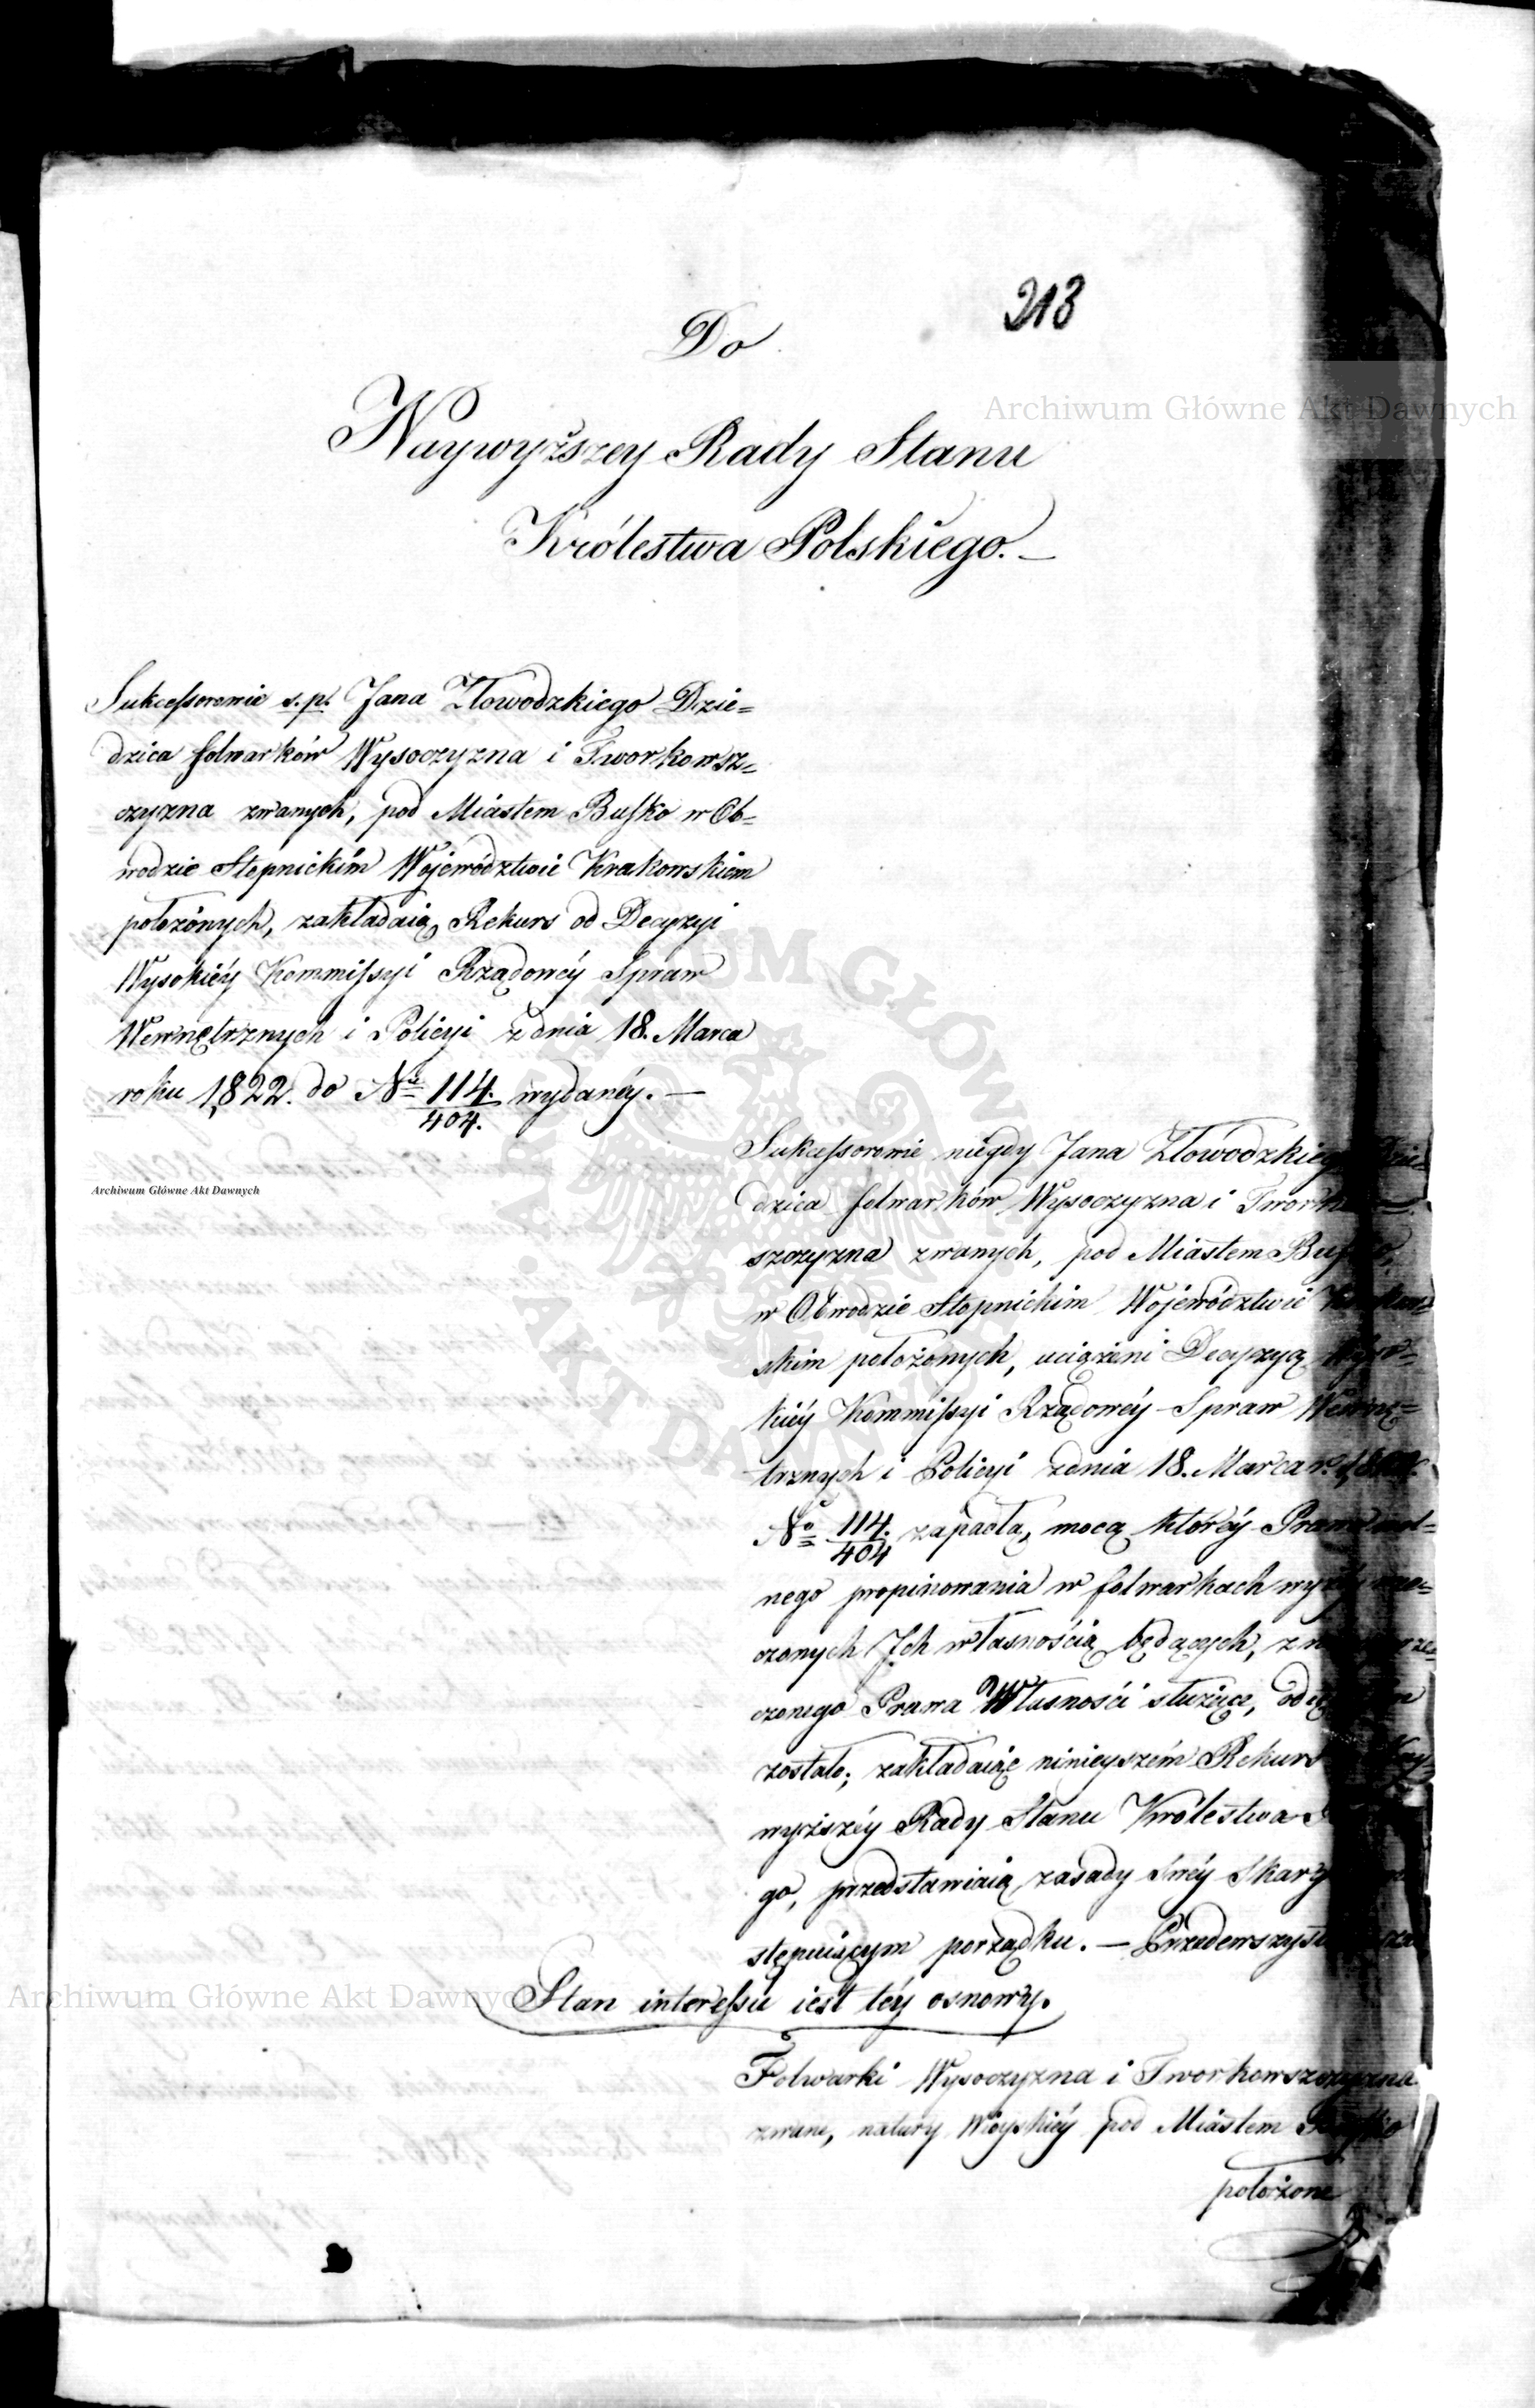 213
Do
Naywyższey Rady Stanu
Królestwa Polskiego. —
Sukcessorowie s. p. Jana Złowodzkiego Dzie=
dzica folwarków Wysoczyzna i Tworkowsz=
czyzna zwanych, pod Miastem Busko w Ob=
wodzie Stopnickim Województwie Krakowskiem
położonych, zakładaią Rekurs od Decyzyi
Wysokiéy Kommissyi Rządowéy Spraw
Wewnętrznych i Policyi z dnia 18. Marca
roku 1822. do No 114./404. wydanéy. —
Archiwum Główne Akt Dawnych
Sukcessorowie niegdy Jana Złowodzkiego Dzie=
dzica folwarków Wysoczyzna i Twork
szczyzna zwanych, pod Miastem Busko,
w Obwodzie Stopnickim Województwie Krakow=
skim położonych, uciążeni Decyzyą Wyso=
kiéy Kommissyi Rządowéy Spraw Wewnę=
trznych i Policyi z dnia 18. Marca r. 1822.
No 114./404 zapadłą, mocą któréy Prawo wol=
nego propinowania w folwarkach wyżéy rze=
czonych Ich własnością będących, z
czonego Prawa Własności służące,
zostało; zakładaiąc ninieyszém Rekurs Nay=
wyższéy Rady Stanu Królestwa
go, przedstawiaią zasady swéy Skargi
stępuiącym porządku. — Przedewszyst
Stan interessu iest téy osnowy.
Folwarki Wysoczyzna i Tworkowszczyzna
zwane, natury Wieyskiéy pod Miastem Busko
położone
Archiwum Główne Akt Dawnych
Archiwum Główne Akt Dawnych
ARCHIWUM GŁÓWNE AKT DAWNYCH